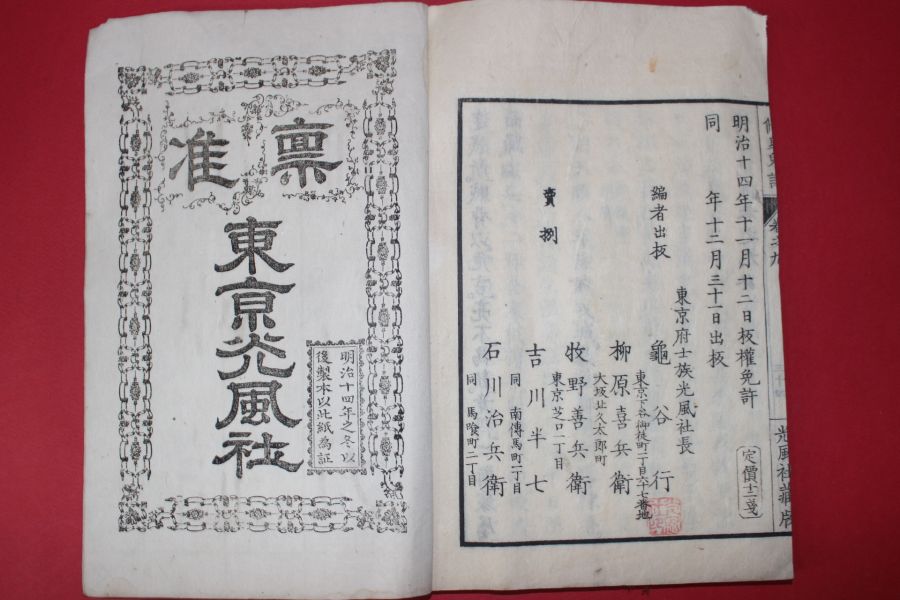 明治十四年十一月十二日板權免許
同 年十二月三十一日出板
定價十二錢
編者出板
東京府士族光風社長
龜谷行
東京下谷御徒町一丁目六十七番地
賣捌
柳原喜兵衛
大坂北久太郎町
牧野善兵衛
東京芝口一丁目
吉川半七
同 南傳馬町一丁目
石川治兵衛
同 馬喰町二丁目
光風社藏版
稟准
東京光風社
明治十四年之冬以
後製本以此紙為証